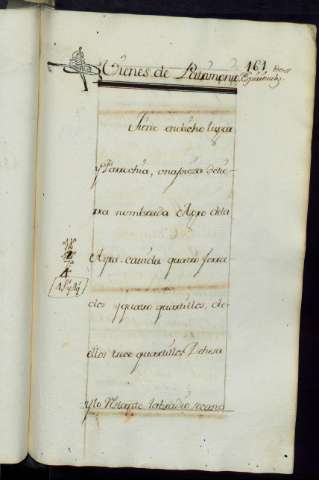 161
Vienes de Patrimonio
Tiene en dicho lugar
y Parrochia, una pieza de tie-
rra nombrada Agro de la
Agra. cavida quatro ferra-
dos y quatro quartillos, de
ellos trece quartillos Dehesa
y lo restante labradio secano